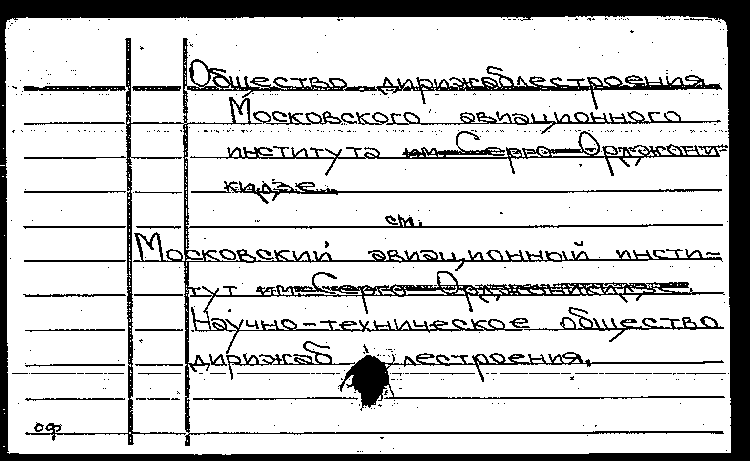 Общество дирижаблестроения
Московского авиационного
института им. Серго Орджони-
кидзе.
см.
Московский авиационный инсти-
тут им. Серго Орджоникидзе.
Научно-техническое общество
дирижаблестроения.
оф